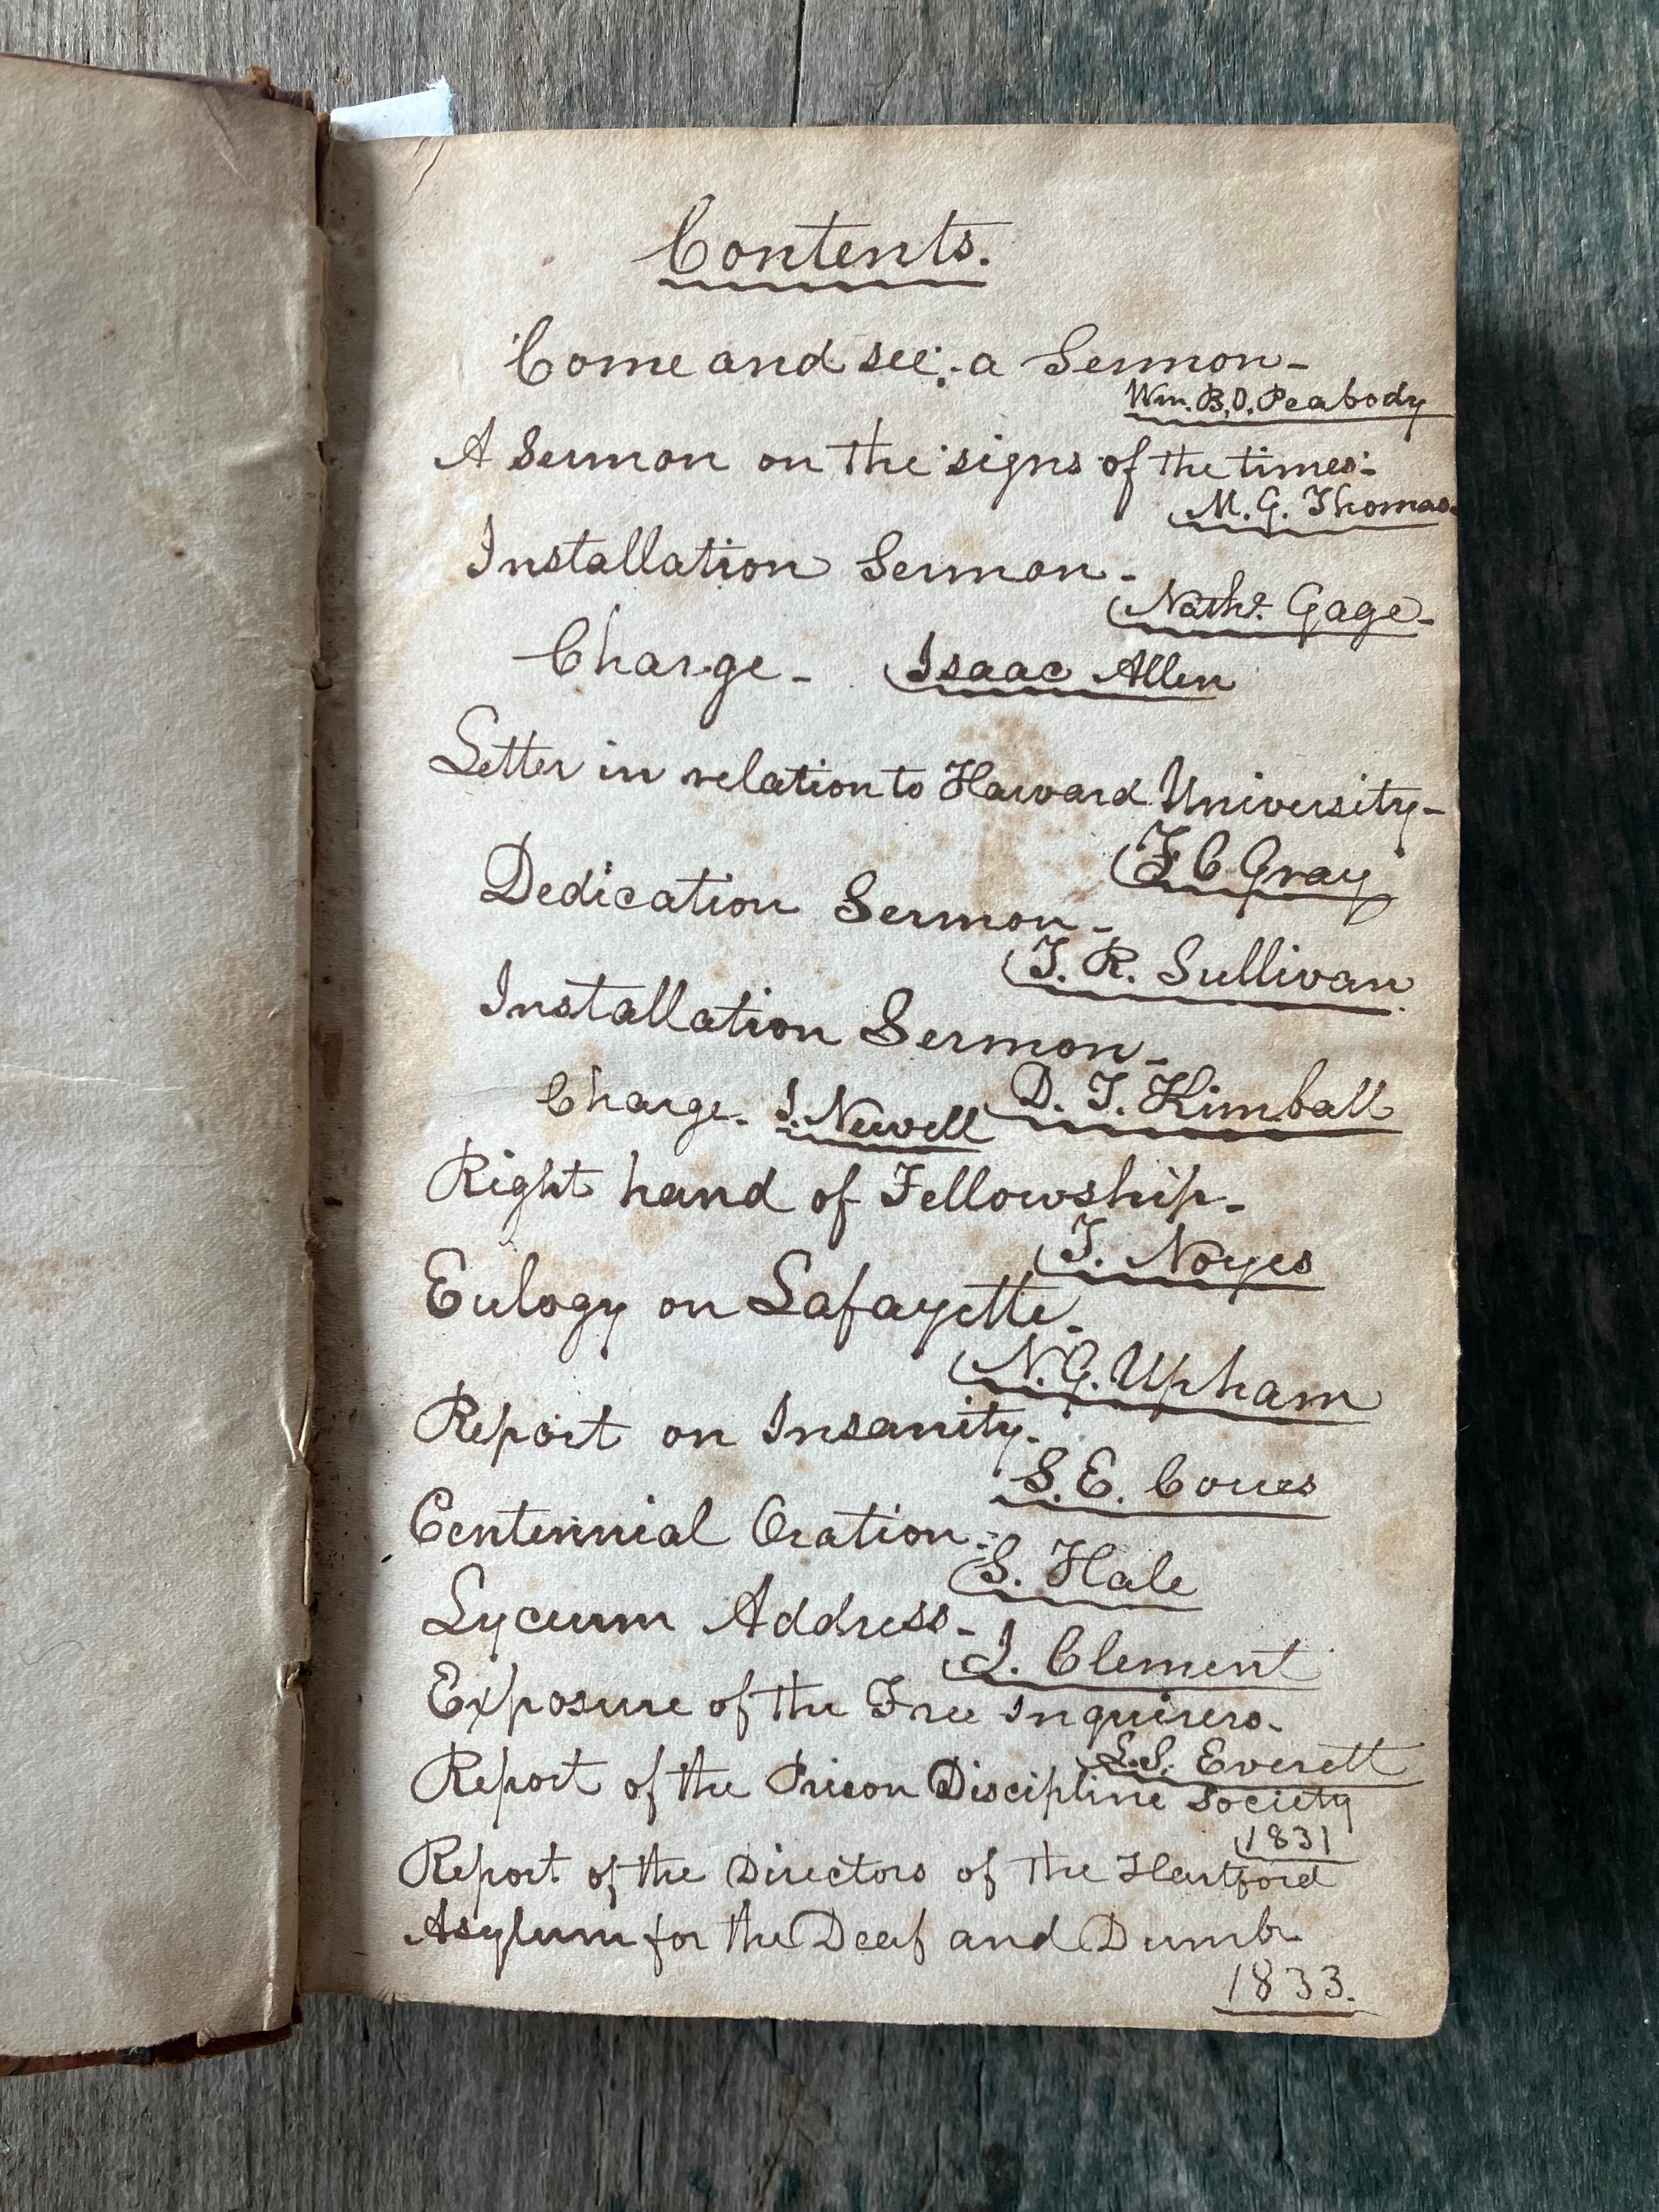 Contents.
Come and see:-a Sermon-
Wm. B.O. Peabody
A Sermon on the signs of the times-
M. G. Thomas.
Installation Sermon-
Nathl. Gage-
Charge- Isaac Allen
Letter in relation to Harvard University-
F C Gray
Dedication Sermon-
T. R. Sullivan
Installation Sermon-
D. T. Kimball
Charge- I. Newell
Right hand of Fellowship-
T. Noyes
Eulogy on Lafayette-
N. G. Upham
Report on Insanity-
S. E. Coues
Centennial Oration-
S. Hale
Lyceum Address-
J. Clement
Exposure of the Free Inquirers-
L.S. Everett
Report of the Prison Discipline Society
1831
Report of the Directors of the Hartford
Asylum for the Deaf and Dumb-
1833.